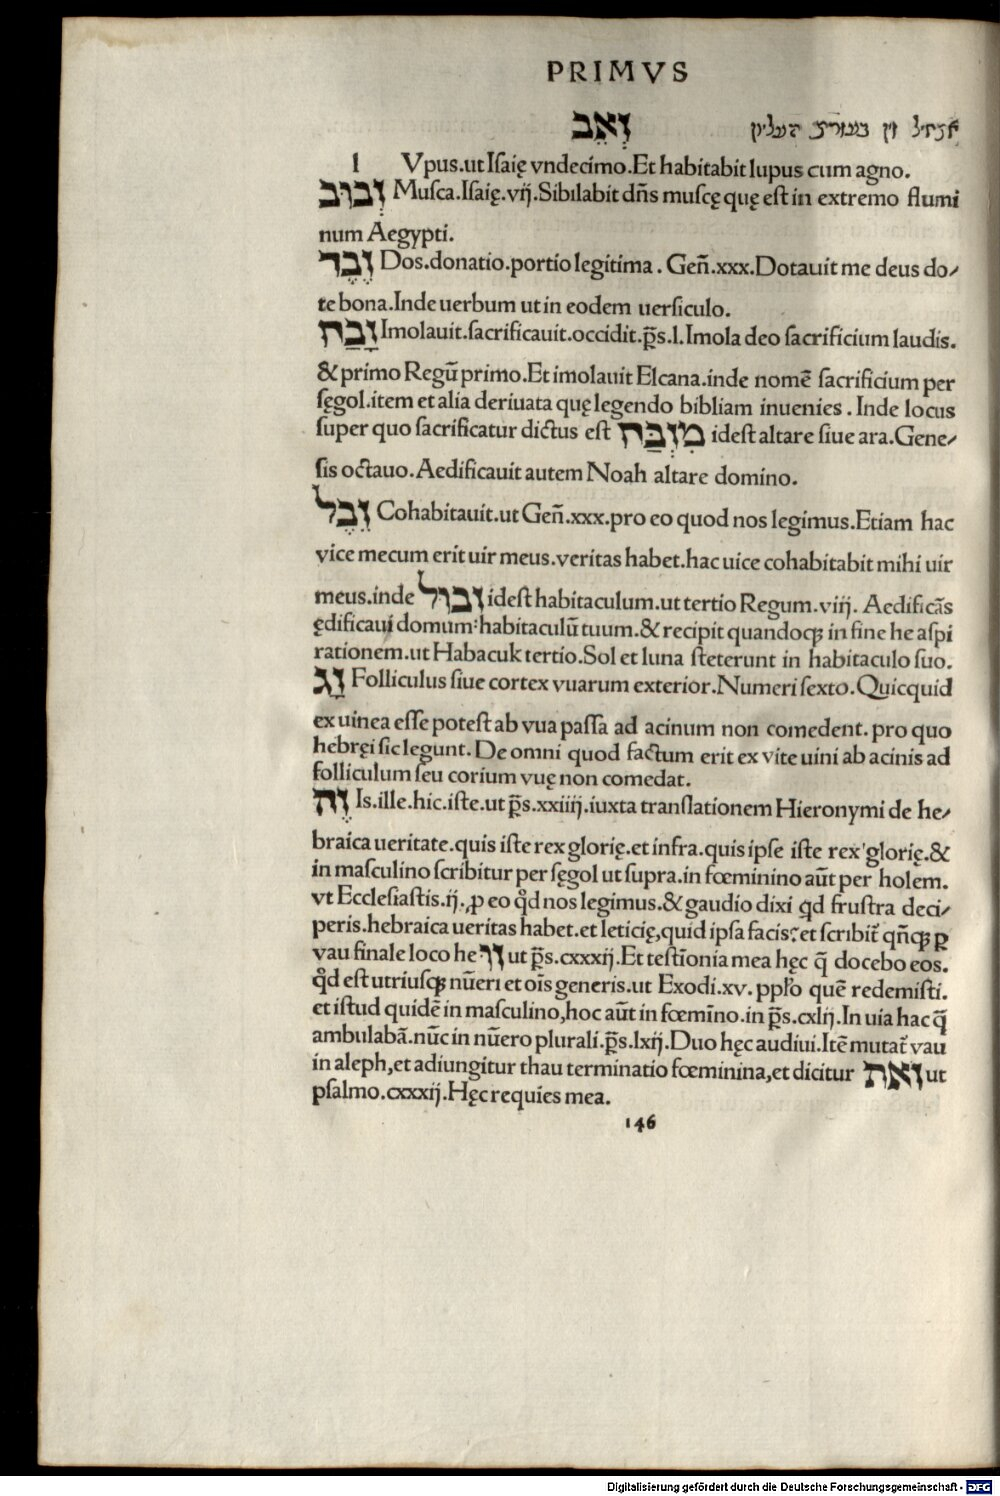 PRIMVS
זְאֵב
l Vpus.ut Isaię vndecimo.Et habitabit lupus cum agno.
זְבוּב Musca.Isaię.vij.Sibilabit dn̄s muscę quę est in extremo flumi
num Aegypti.
זֶבֶד Dos.donatio.portio legitima. Gen̄.xxx.Dotauit me deus do⸗
te bona.Inde uerbum ut in eodem uersiculo.
זָבַח Imolauit.sacrificauit.occidit.p̄s.l.Imola deo sacrificium laudis.
& primo Regū primo.Et imolauit Elcana.inde nomē sacrificium per
sęgol.item et alia deriuata quę legendo bibliam inuenies. Inde locus
super quo sacrificatur dictus est מִזְבַּח idest altare siue ara.Gene⸗
sis octauo.Aedificauit autem Noah altare domino.
זֵבֶל Cohabitauit.ut Gen̄.xxx.pro eo quod nos legimus.Etiam hac
vice mecum erit uir meus.veritas habet.hac uice cohabitabit mihi uir
meus.inde זבוּל idest habitaculum.ut tertio Regum.viij. Aedificās
ędificaui domum:habitaculū tuum.& recipit quandoqꝫ in fine he aspi
rationem.ut Habacuk tertio.Sol et luna steterunt in habitaculo suo.
זָג Folliculus siue cortex vuarum exterior.Numeri sexto.Quicquid
ex uinea esse potest ab vua passa ad acinum non comedent.pro quo
hebręi sic legunt.De omni quod factum erit ex vite uini ab acinis ad
folliculum seu corium vuę non comedat.
זֶה Is.ille.hic.iste.ut p̄s.xxiiij.iuxta translationem Hieronymi de he⸗
braica ueritate.quis iste rex glorię.et infra.quis ipse iste rex glorię.&
in masculino scribitur per sęgol ut supra.in fœminino aūt per holem.
vt Ecclesiastis.ij.,ꝓ eo qd̄ nos legimus.& gaudio dixi qd frustra deci⸗
peris.hebraica ueritas habet.et leticię,quid ipsa facis:et scribit̄ qn̄qꝫ ꝑ
vau finale loco he זוּ ut p̄s.cxxxij.Et testīonia mea hęc q̄ docebo eos.
qd̄ est utriusqꝫ nūeri et oīs generis.ut Exodi.xv.pplo̅ quē redemisti.
et istud quidē in masculino,hoc aūt in fœmīno.in p̄s.cxlij.In uia hac q̄
ambulabā.nūc in nūero plurali.p̄s.lxij.Duo hęc audiui.Itē mutat̄ vau
in aleph,et adiungitur thau terminatio fœminina,et dicitur זאת ut
psalmo.cxxxij.Hęc requies mea.
146
Digitalisierung gefördert durch die Deutsche Forschungsgemeinschaft - DFG